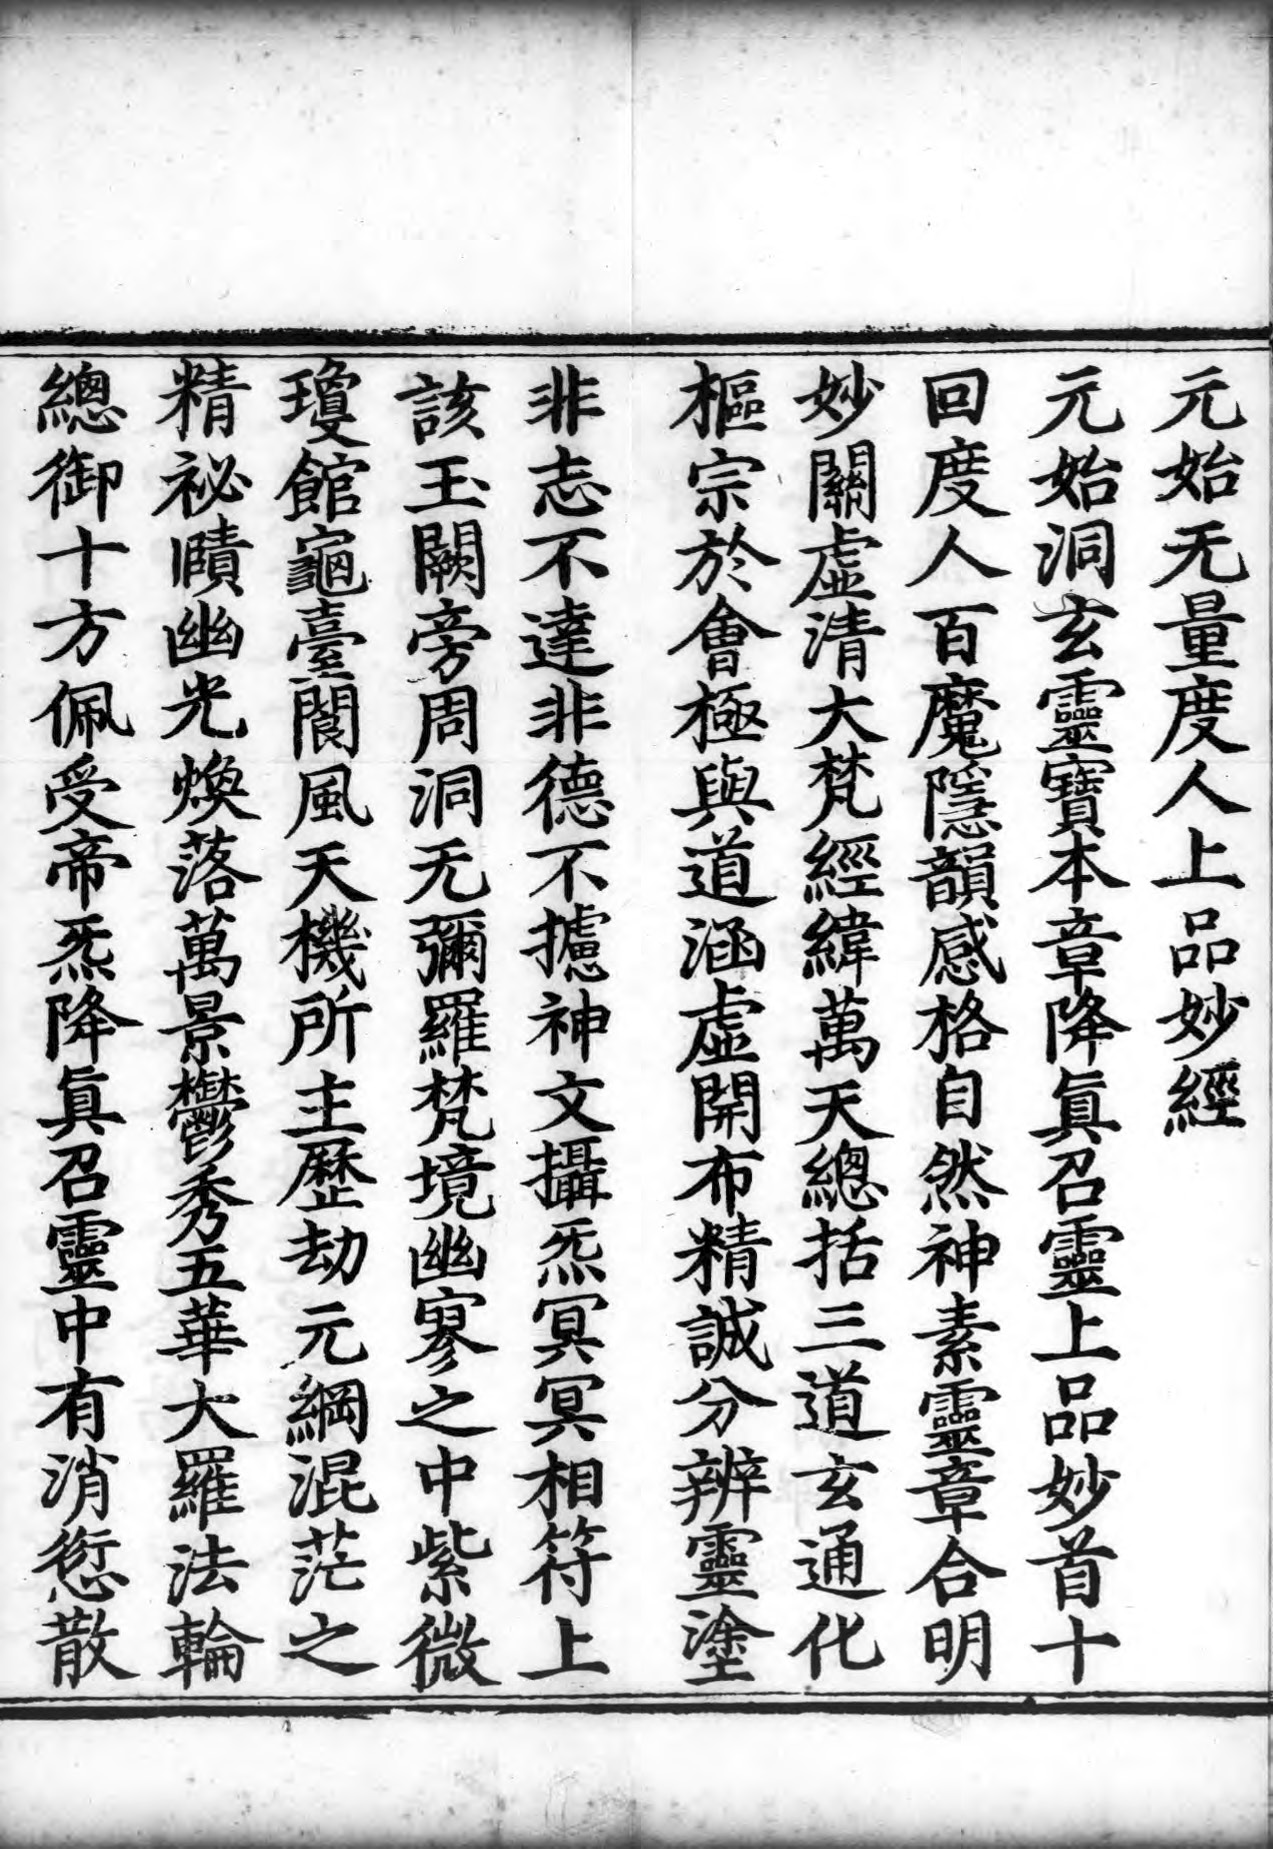 元始无量度人上品妙經
元始洞玄靈寶本章降眞召靈上品妙首十
回度人百魔隱韻感格自然神素靈章合明
妙關虛清大梵經緯萬天總括三道玄通化
樞宗於會極與道涵虛開布精誠分辨靈塗
非志不達非德不攄神文攝炁冥冥相符上
該玉闕旁周洞无彌羅梵境幽寥之中紫微
瓊館龜臺閬風天機所主歷劫元綱混茫之
精祕賾幽光煥落萬景鬱秀五華大羅法輪
總御十方佩受帝炁降眞召靈中有消愆散